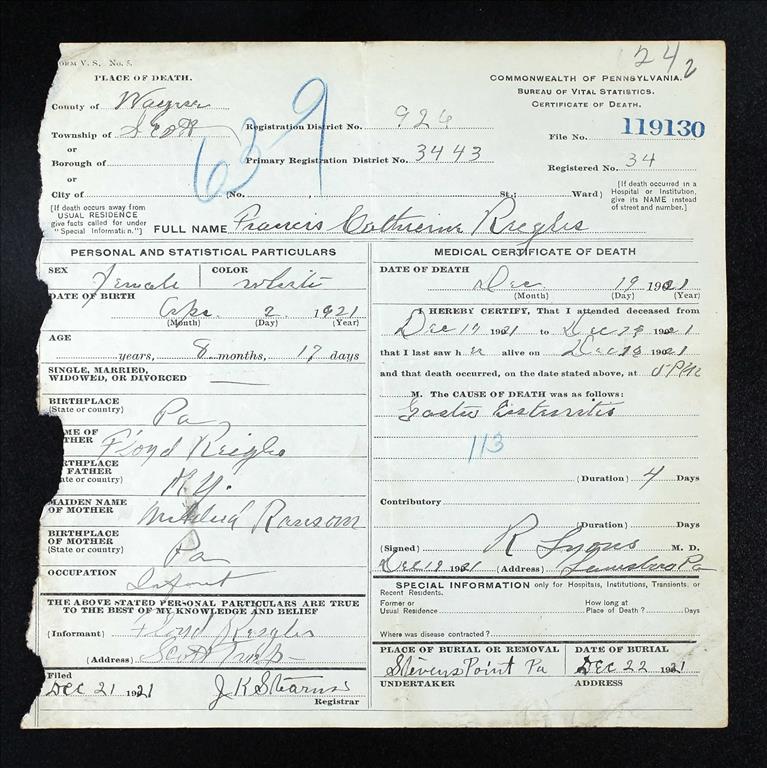 ORM V. S. No. 5.
242
PLACE OF DEATH.
County of Wayne
Township of Scott
or
Borough of
or
City of
639
Registration District No. 926
Primary Registration District No. 3443
(No. , St.; Ward)
COMMONWEALTH OF PENNSYLVANIA.
BUREAU OF VITAL STATISTICS.
CERTIFICATE OF DEATH.
File No. 119130
Registered No. 34
[If death occurred in a Hospital or Institution, give its NAME instead of street and number.]
[If death occurs away from USUAL RESIDENCE give facts called for under "Special Information."]
FULL NAME Francis Catherine Riegles
PERSONAL AND STATISTICAL PARTICULARS
SEX Female
COLOR White
DATE OF BIRTH Apr. 2 1921
(Month) (Day) (Year)
AGE
years, 8 months, 17 days
SINGLE, MARRIED,
WIDOWED, OR DIVORCED —
BIRTHPLACE
(State or country) Pa
NAME OF
FATHER Floyd Reigles
BIRTHPLACE
FATHER
(State or country) N.Y.
MAIDEN NAME
OF MOTHER Mildred Ransom
BIRTHPLACE
OF MOTHER
(State or country) Pa
OCCUPATION Infant
THE ABOVE STATED PERSONAL PARTICULARS ARE TRUE
TO THE BEST OF MY KNOWLEDGE AND BELIEF
(Informant) Floyd Reigles
(Address) Scott Twp
Filed
Dec 21 1921 J K Stearns
Registrar
MEDICAL CERTIFICATE OF DEATH
DATE OF DEATH
Dec 19 1921
(Month) (Day) (Year)
I HEREBY CERTIFY, That I attended deceased from
Dec 17 1921 to Dec 1921
that I last saw her alive on Dec 18 1921
and that death occurred, on the date stated above, at 5 PM
M. The CAUSE OF DEATH was as follows:
Gastro Enteritis
113
(Duration) 4 Days
Contributory
(Duration) Days
(Signed) R Lyons M. D.
Dec 19 1921 (Address) Pa
SPECIAL INFORMATION only for Hospitals, Institutions, Transients, or
Recent Residents.
Former or
Usual Residence
How long at
Place of Death? Days
Where was disease contracted?
PLACE OF BURIAL OR REMOVAL
Stevens Point Pa
DATE OF BURIAL
Dec 22 1921
UNDERTAKER
ADDRESS